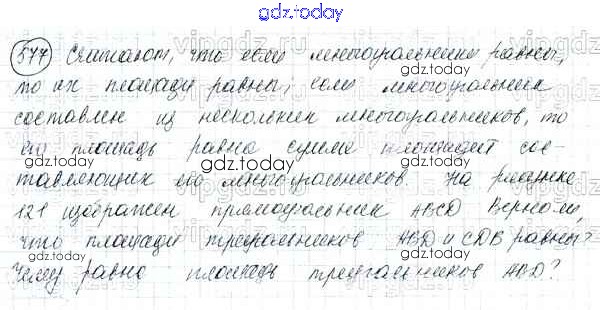 gdz.today
577 Считают, что если многоугольники равны,
то их площади равны; если многоугольник
составлен из нескольких многоугольников, то
его площадь равна сумме площадей сос-
тавляющих его многоугольников. На рисунке
121 изображен прямоугольник ABCD Верно ли,
что площади треугольников ABD и CDB равны?
Чему равна площадь треугольников ABD?
gdz.today